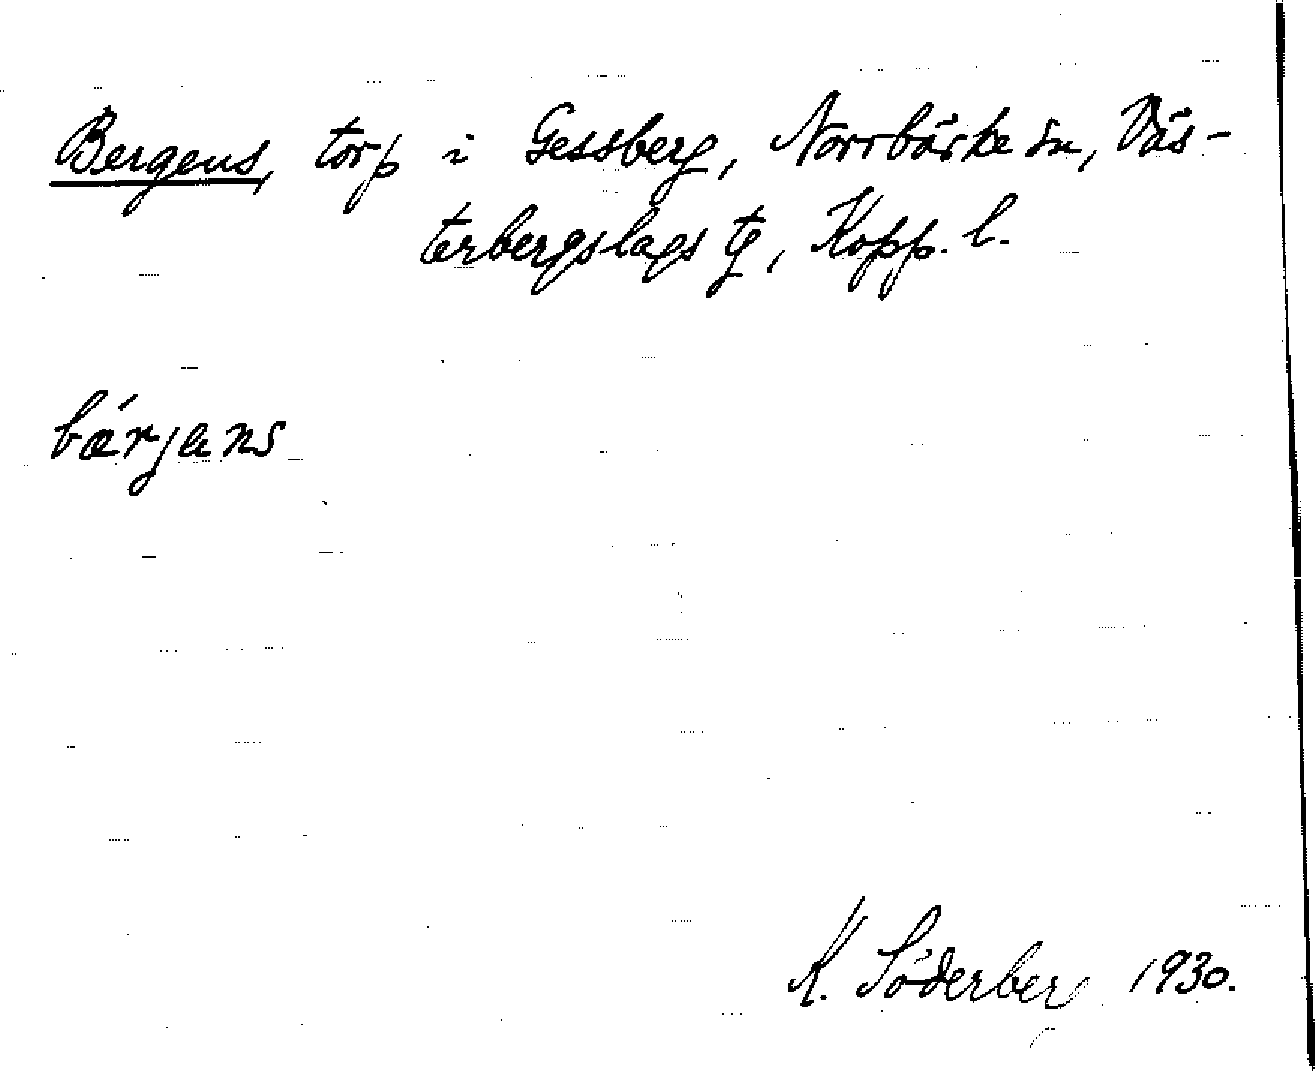 Bergens, torp i Gessberg, Norrbärke sn, Väs-
terbergslags tg, Kopp. l.
bǽrjans
K. Söderberg 1930.